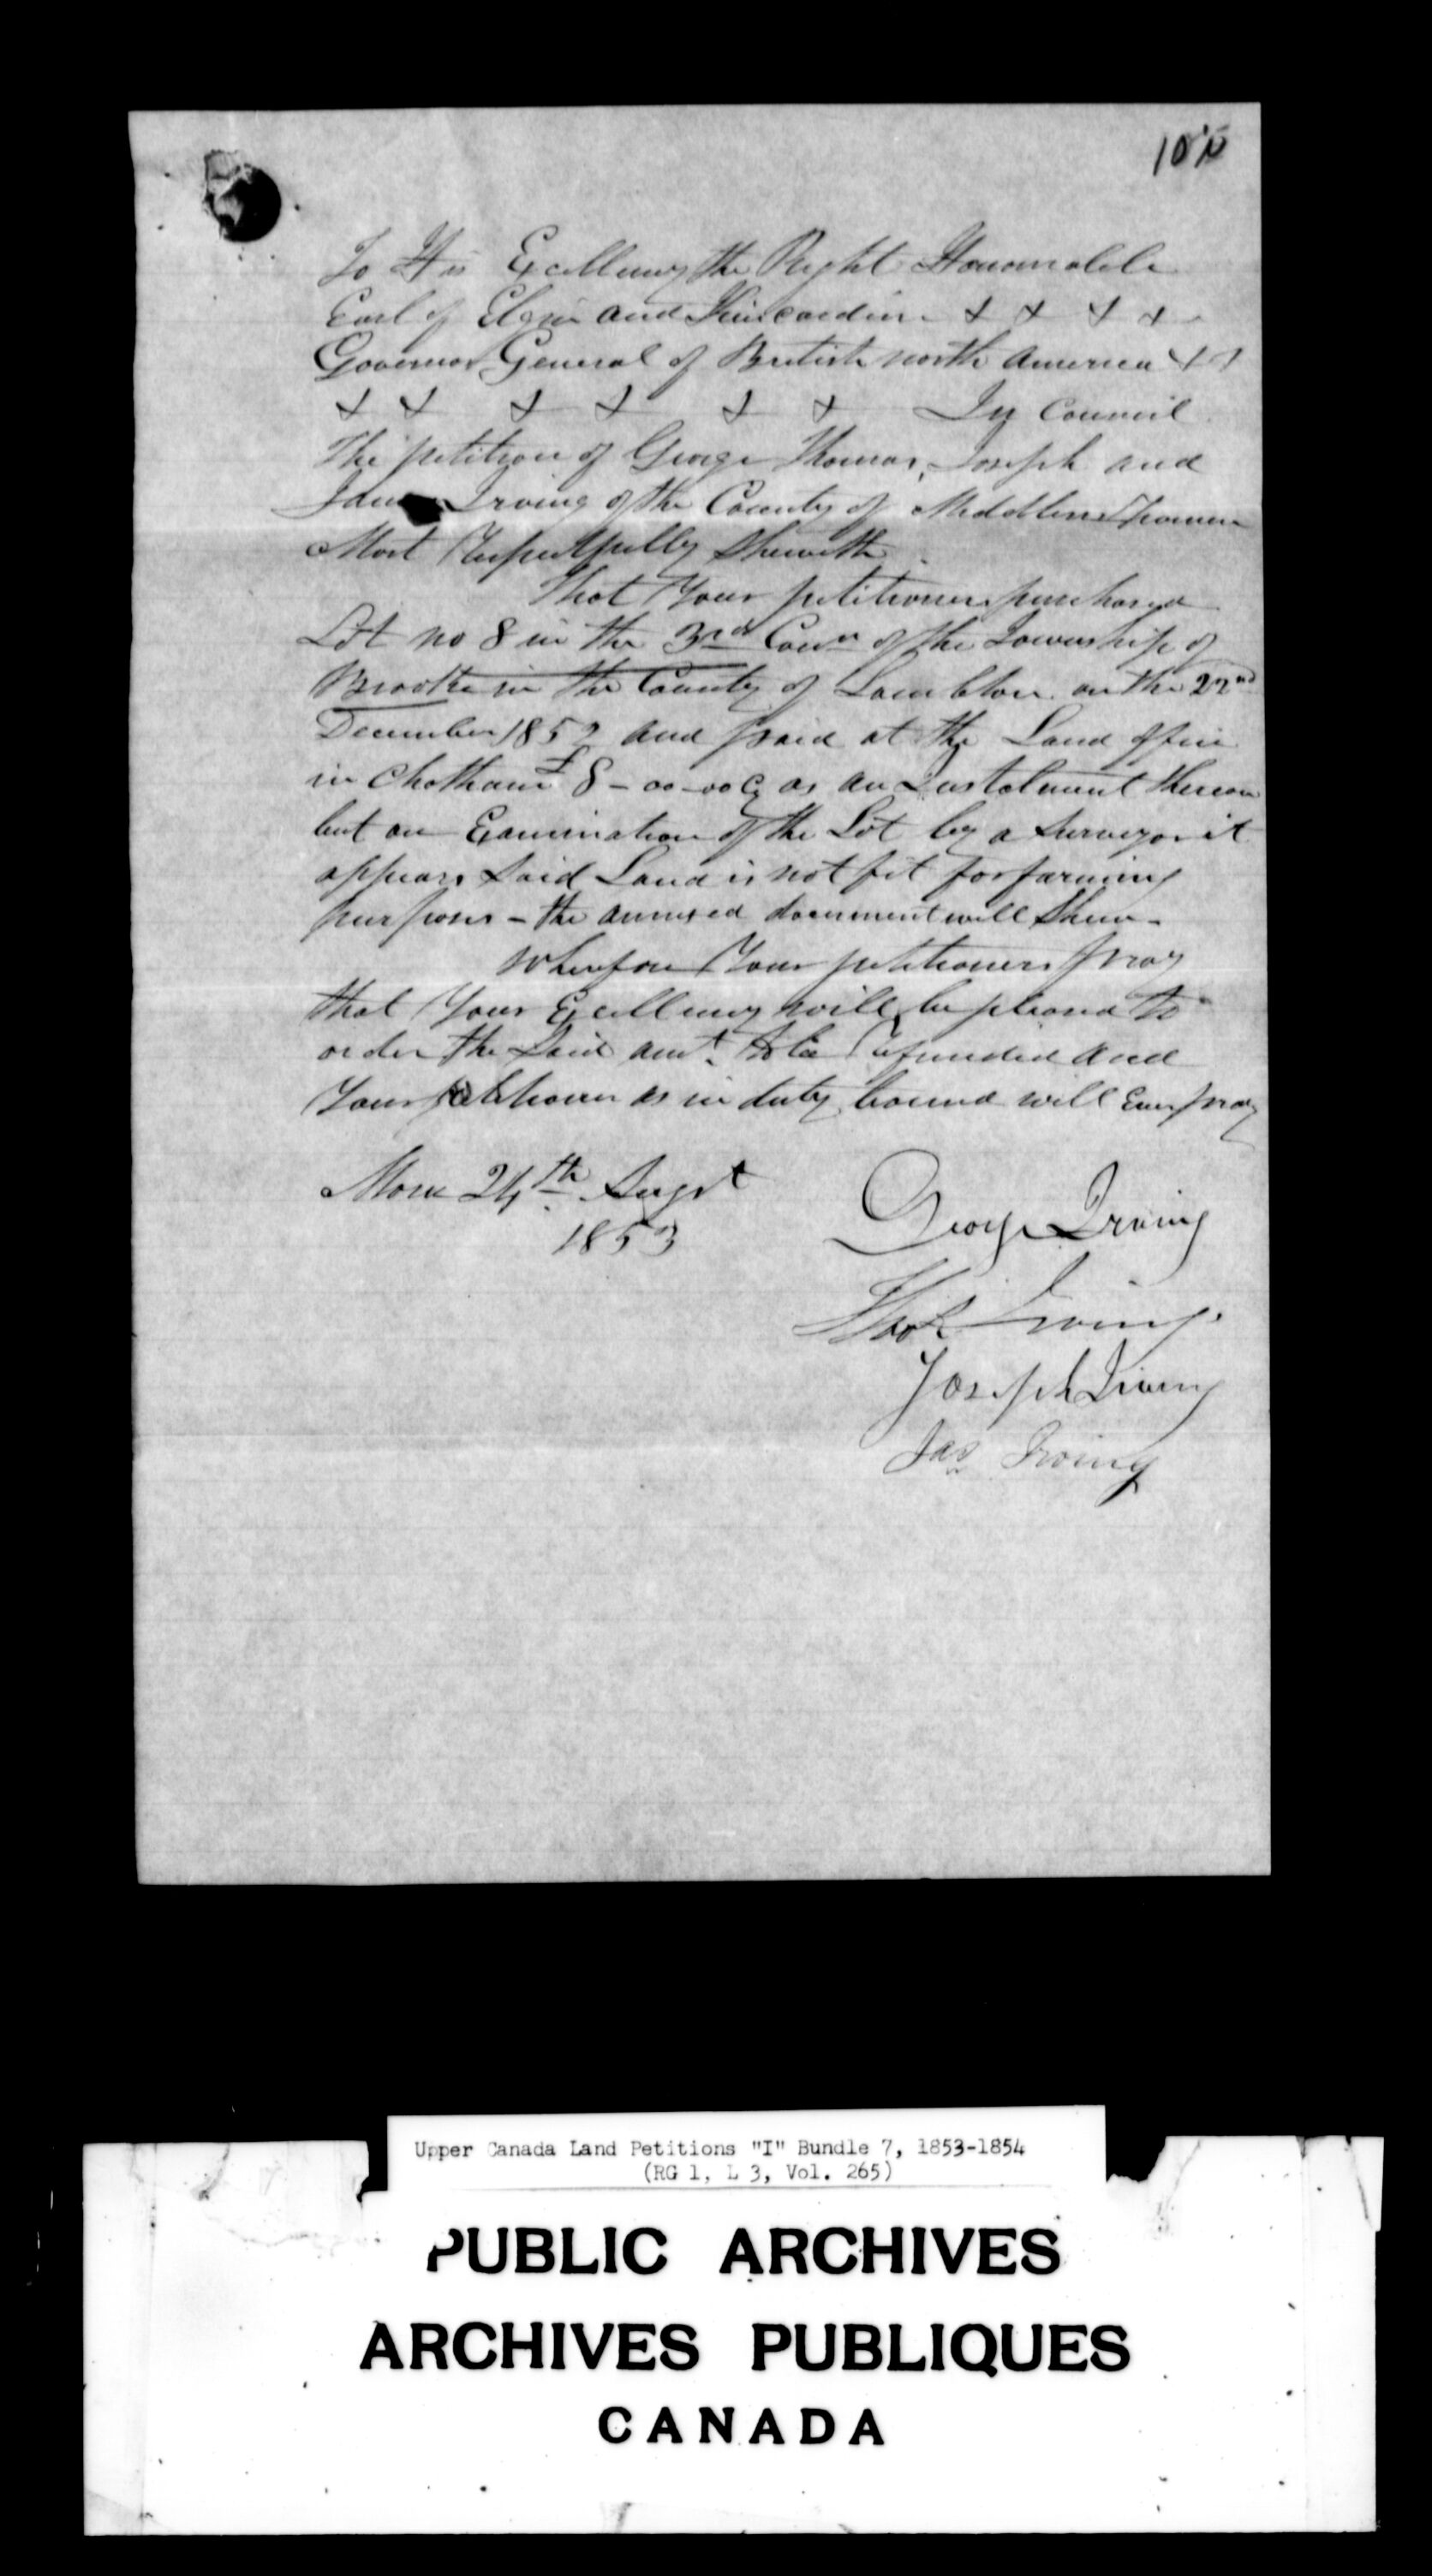 To His Excellency the Right Honourable
Earl of Elgin and Kincardine + + + +
Governor General of British north america + +
+ + + + + + In Council
The petition of George Thomas, Joseph and
James Irving of the County of Middlesex
Most Respectfully Sheweth
That Your petitioners purchased
Lot no 8 in the 3rd Conn of the Township of
Brooke in the County of Lambton on the 22nd
December 1852 and paid at the Land office
in Chatham £8-00-00 Cy as an Instalment thereon
but on Examination of the Lot by a Surveyor it
appears Said Land is not fit for farming
purposes - the annexed document will Shew -
Wherefore Your petitioners pray
that Your Excellency will be pleased to
order the Said amt. to be refunded and
Your petitioners as in duty bound will Ever pray
Mosa 24th Augst
1853
George Irving
Thos Irving.
Joseph Irving
Jas Irving
Upper Canada Land Petitions "I" Bundle 7, 1853-1854
(RG 1, L 3, Vol. 265)
PUBLIC ARCHIVES
ARCHIVES PUBLIQUES
CANADA